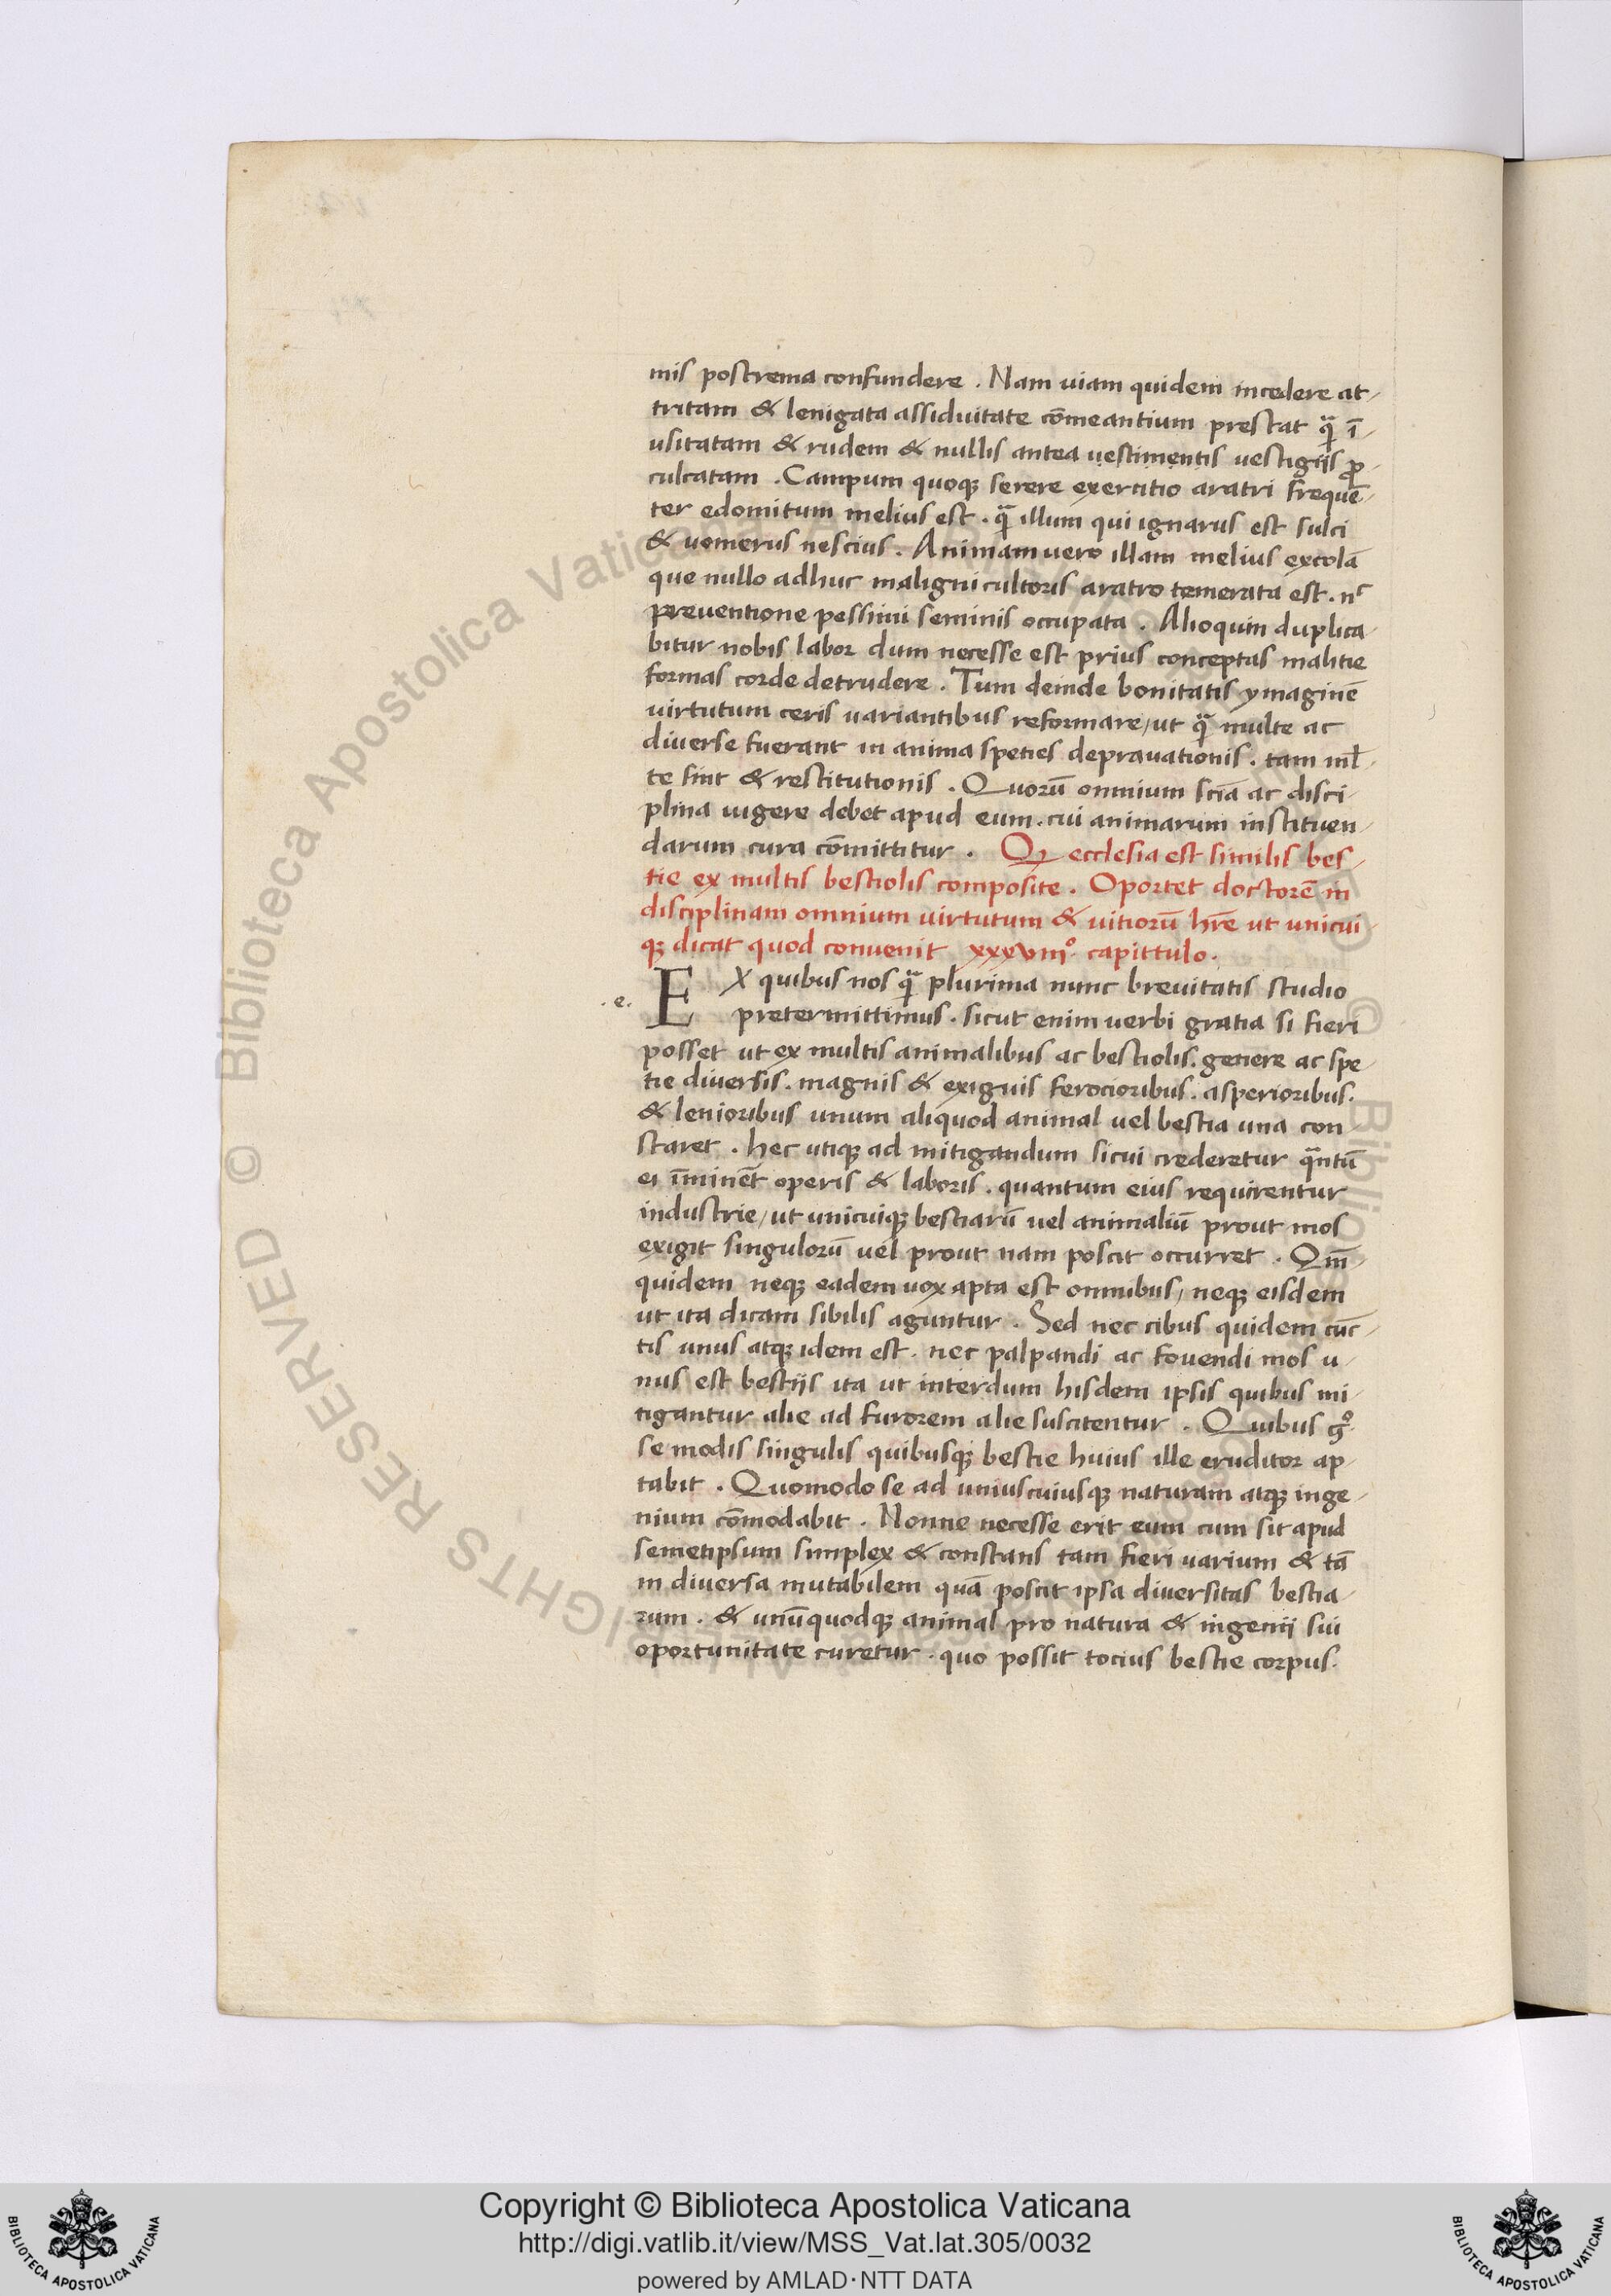 mis postrema confundere . Nam uiam quidem incedere at-
tritam & lenigata assiduitate cōmeantium prestat qȝ̃ ī-
usitatam & rudem & nullis antea uestimentis uestigijs ꝓ-
culcatam . Campum quoqꝫ serere exercitio aratri frequē-
ter edomitum melius est . qȝ̃ illum qui ignarus est sulci
& uomerus nescius . Animam uero illam melius excolā
que nullo adhuc maligni cultoris aratro temerata est . nͨ
preuentione pessimi seminis occupata . Alioquin duplica-
bitur nobis labor dum necesse est prius conceptas malitie
formas corde detrudere . Tum deinde bonitatis ymaginē
virtutum ceris uariantibus reformare / ut qȝ̃ multe ac
diuerse fuerant in anima speties deprauationis . tam ml̄-
te sint & restitutionis . Quorū omnium scīa ac disci-
plina uigere debet apud eum . cui animarum instituen-
darum cura cōmittitur . Qꝫ ecclesia est similis bes-
tie ex multis bestiolis composite . Oportet doctorē in
disciplinam omnium virtutum & uitiorū hr̄e ut unicui-
qꝫ dicat quod conuenit xxxviiiº . capittulo .
. e . EX quibus nos qȝ̃ plurima nunc breuitatis studio
pretermittimus . sicut enim uerbi gratia si fieri
posset ut ex multis animalibus ac bestiolis . genere ac spe-
tie diuersis . magnis & exiguis ferocioribus . asperioribus .
& lenioribus unum aliquod animal uel bestia una con-
staret . hec utiqꝫ ad mitigandum sicui crederetur qᷓntū
ei īminēt operis & laboris . quantum eius requirentur
industrie / ut unicuiqꝫ bestiarū uel animaliū prout mos
exigit singulorū uel prout nam poscit occurret . Qm̄-
quidem neqꝫ eadem uox apta est omnibus / neqꝫ eisdem
ut ita dicam sibilis aguntur . Sed nec cibus quidem cūc-
tis unus atqꝫ idem est . nec palpandi ac fouendi mos u-
nus est bestijs ita ut interdum hisdem ipsis quibus mi-
tigantur alie ad furorem alie suscitentur . Quibus gº
se modis singulis quibusqꝫ bestie huius ille eruditor ap-
tabit . Quomodo se ad uniuscuiusqꝫ naturam atqꝫ inge-
nium cōmodabit . Nonne necesse erit eum cum sit apud
semetipsum simplex & constans tam fieri uarium & tā
in diuersa mutabilem quā poscit ipsa diuersitas bestia-
rum . & unūquodqꝫ animal pro natura & ingenij sui
oportunitate curetur . quo possit tocius bestie corpus .
© Biblioteca Apostolica Vaticana
RIGHTS RESERVED
BIBLIOTECA APOSTOLICA VATICANA
Copyright © Biblioteca Apostolica Vaticana
http://digi.vatlib.it/view/MSS_Vat.lat.305/0032
powered by AMLAD·NTT DATA
BIBLIOTECA APOSTOLICA VATICANA